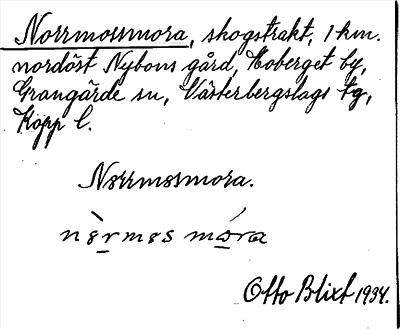 Norrmossmora, skogstrakt, 1 km.
nordöst Nybons gård, Hoberget by,
Grangärde sn, Västerbergslags tg,
Kopp l.
Nørrmøsmora.
nø̀rmøs móra
Otto Blixt 1934.